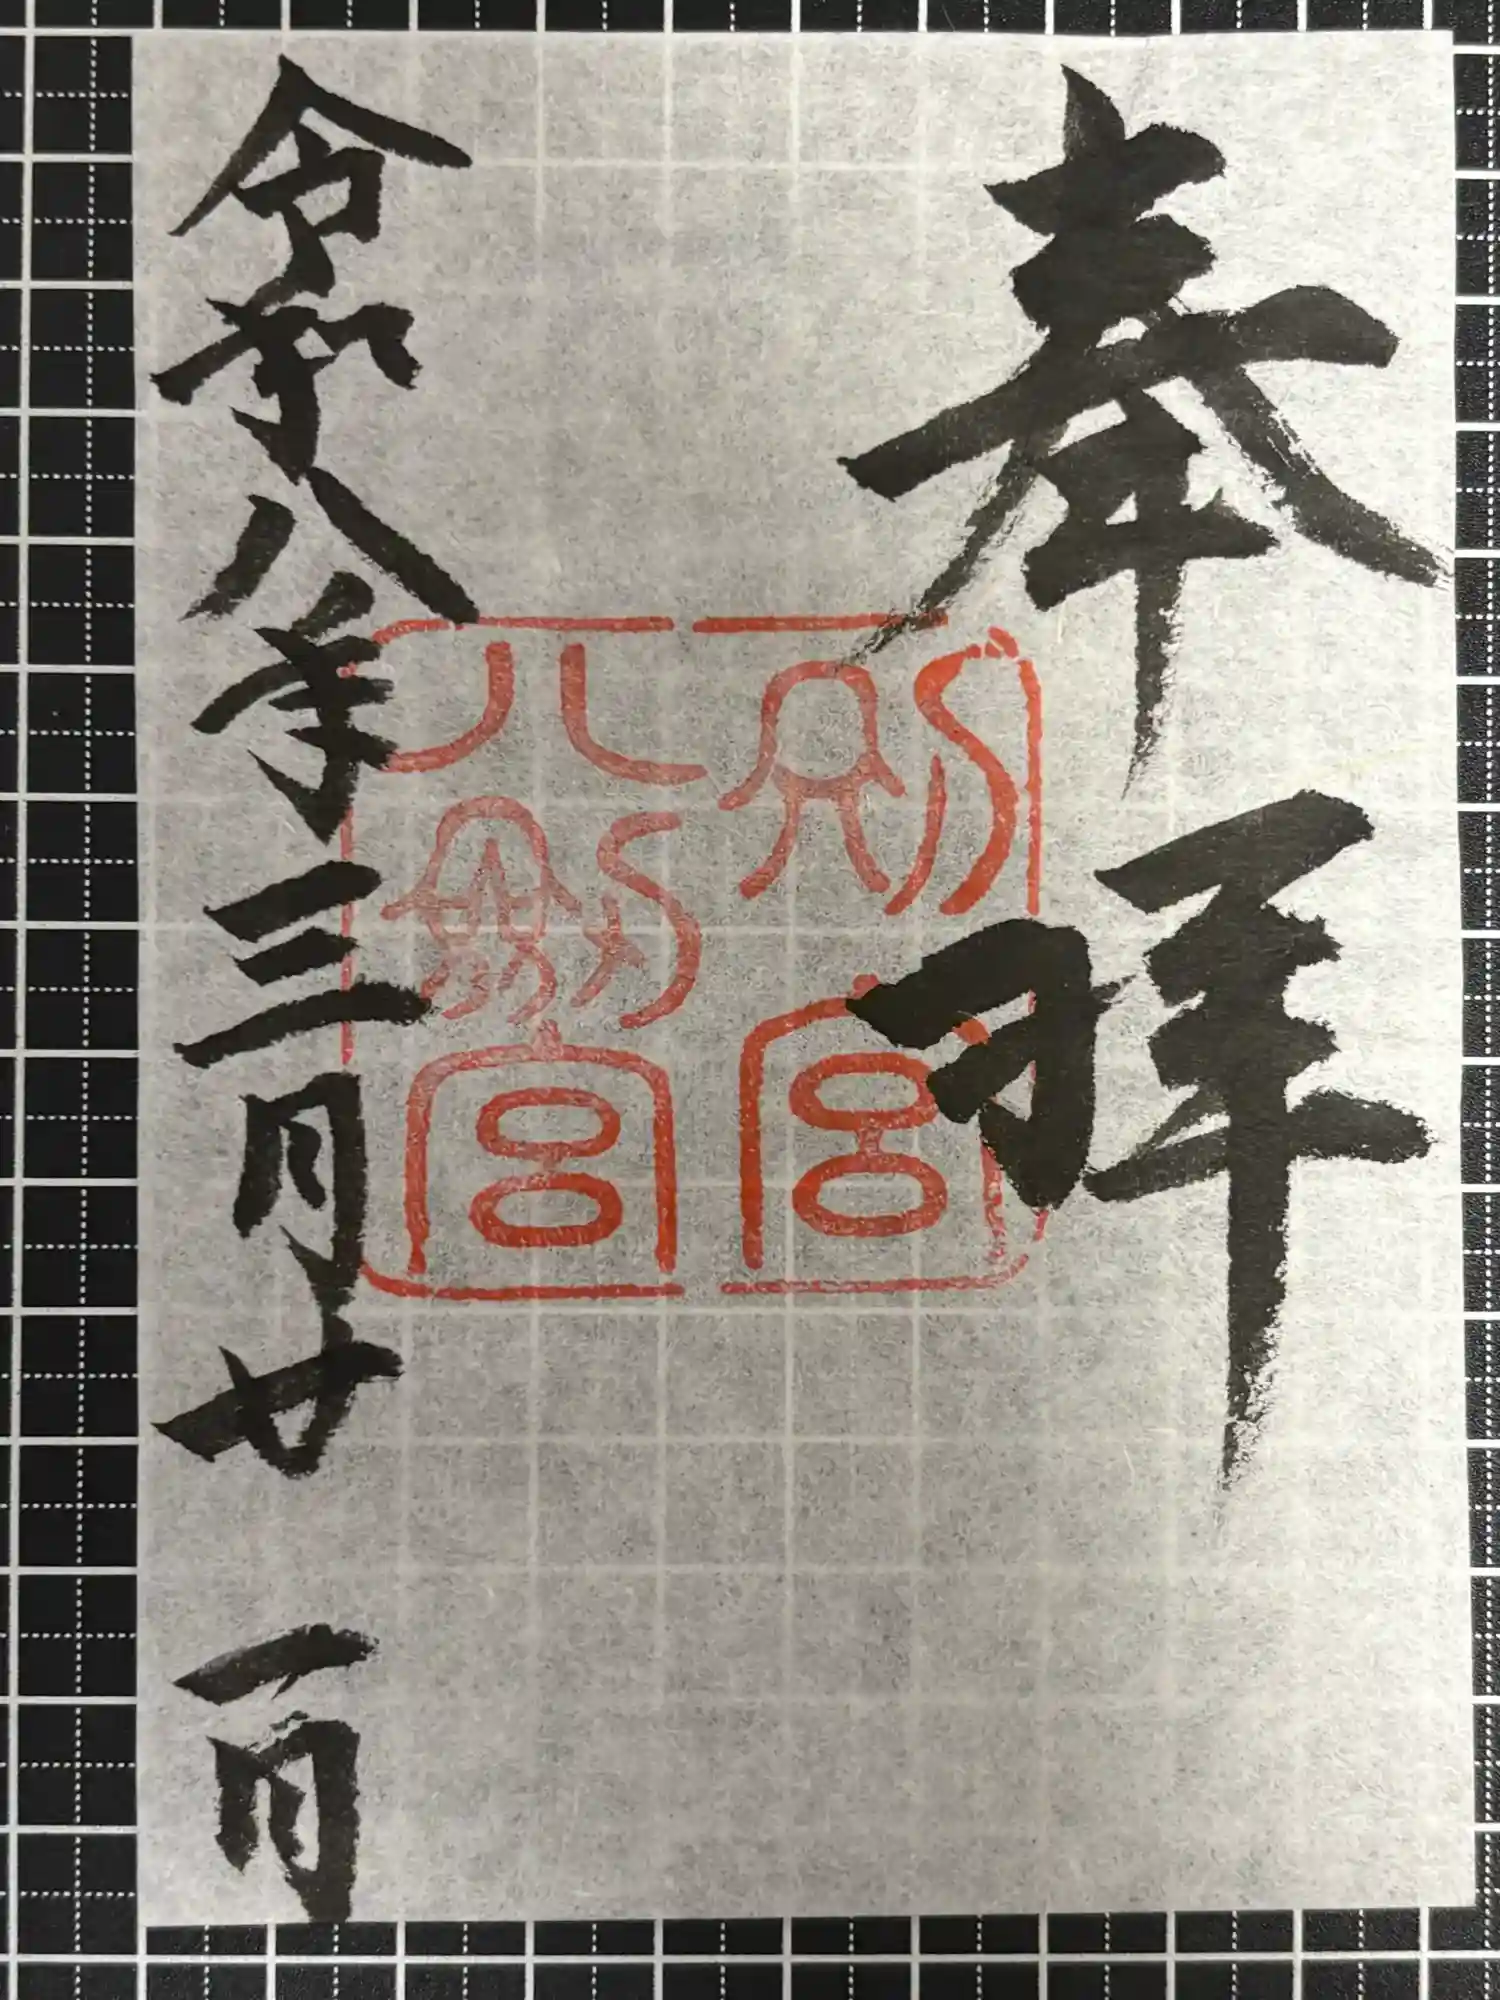 奉拝
別宮
八劔宮
令和八年三月廿一日